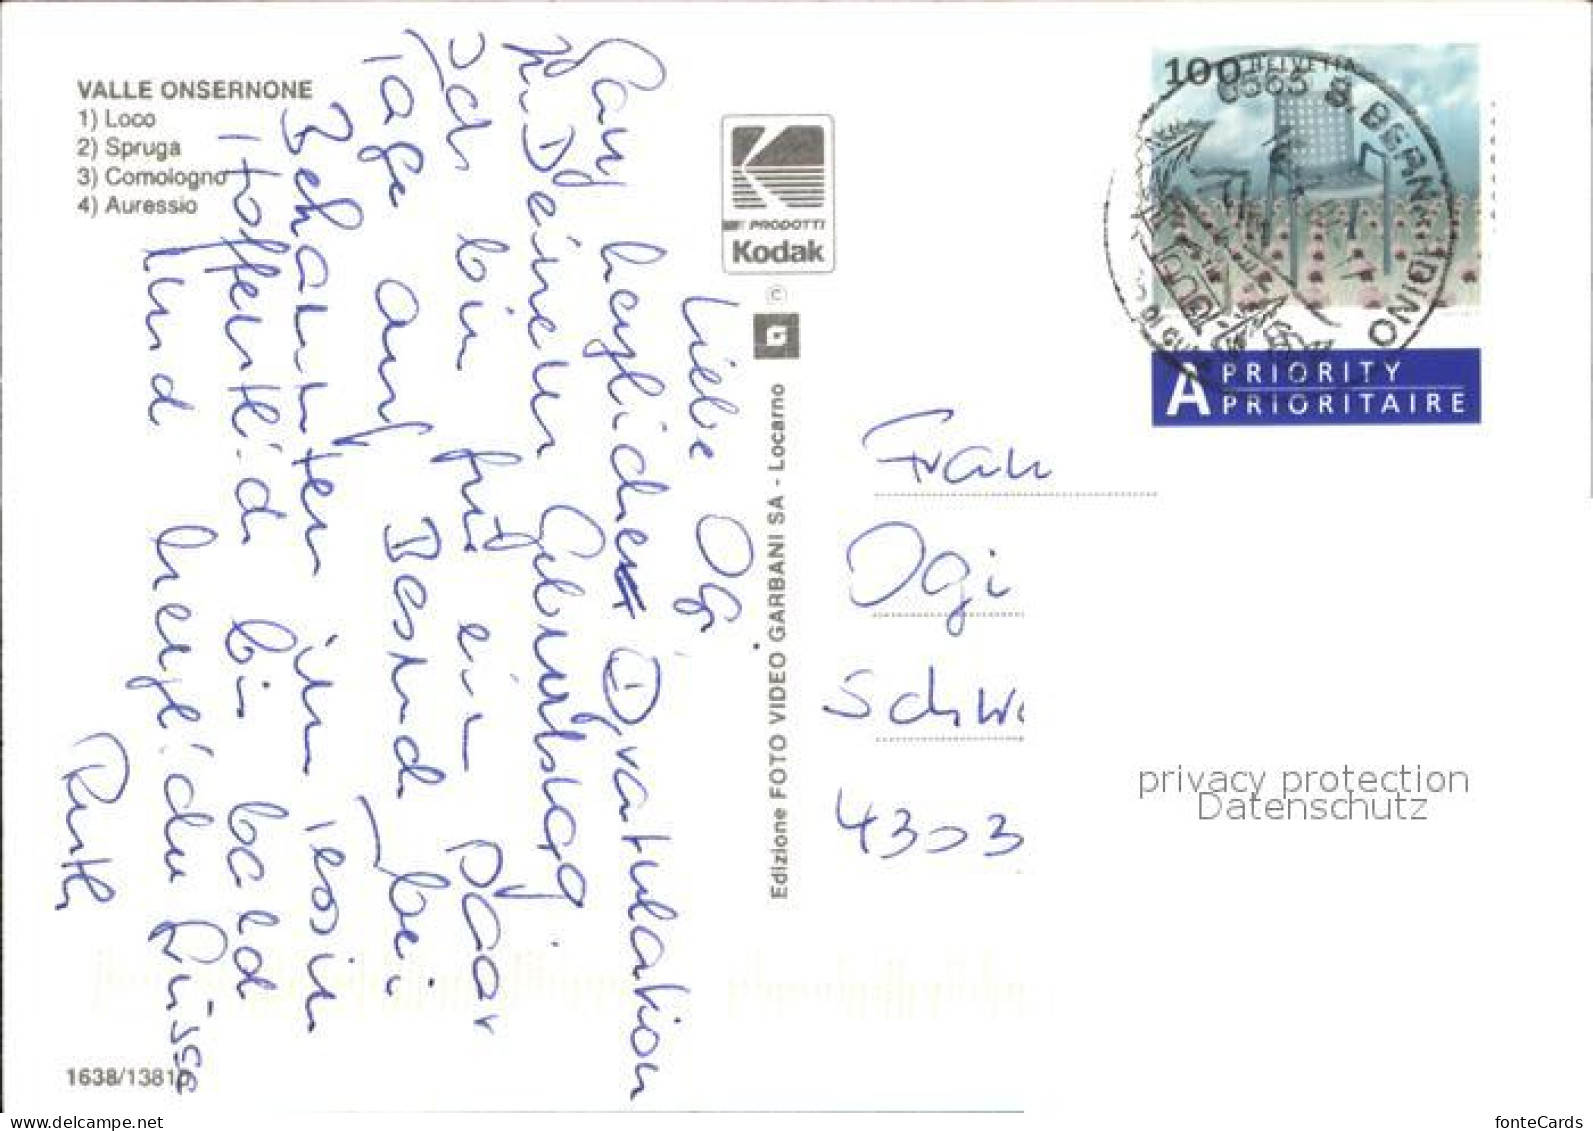 VALLE ONSERNONE
1) Loco
2) Spruga
3) Comologno
4) Auressio
PRODOTTI
Kodak
©
Edizione FOTO VIDEO GARBANI SA - Locarno
1638/1381
Liebe Ogi,
Ganz herzliche Gratulation
zu Deinem Geburtstag
Ich bin für ein paar
Tage auf Besuch bei
Bekannten im Tessin
Hoffentlich bis bald
Und herzliche Grüsse
Ruth
100 HELVETIA
6565 S. BERNARDINO
A PRIORITY
PRIORITAIRE
Frau
Ogi
Schw
4303
privacy protection
Datenschutz
fonteCards